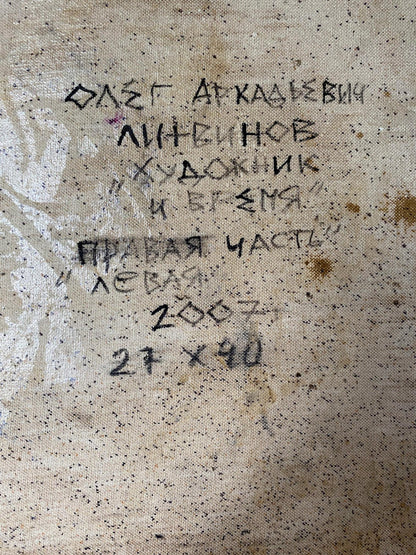 ОЛЕГ АРКАДЬЕВИЧ
ЛИТВИНОВ
"ХУДОЖНИК
И ВРЕМЯ"
ПРАВАЯ ЧАСТЬ"
"ЛЕВАЯ
2007
27 X 40